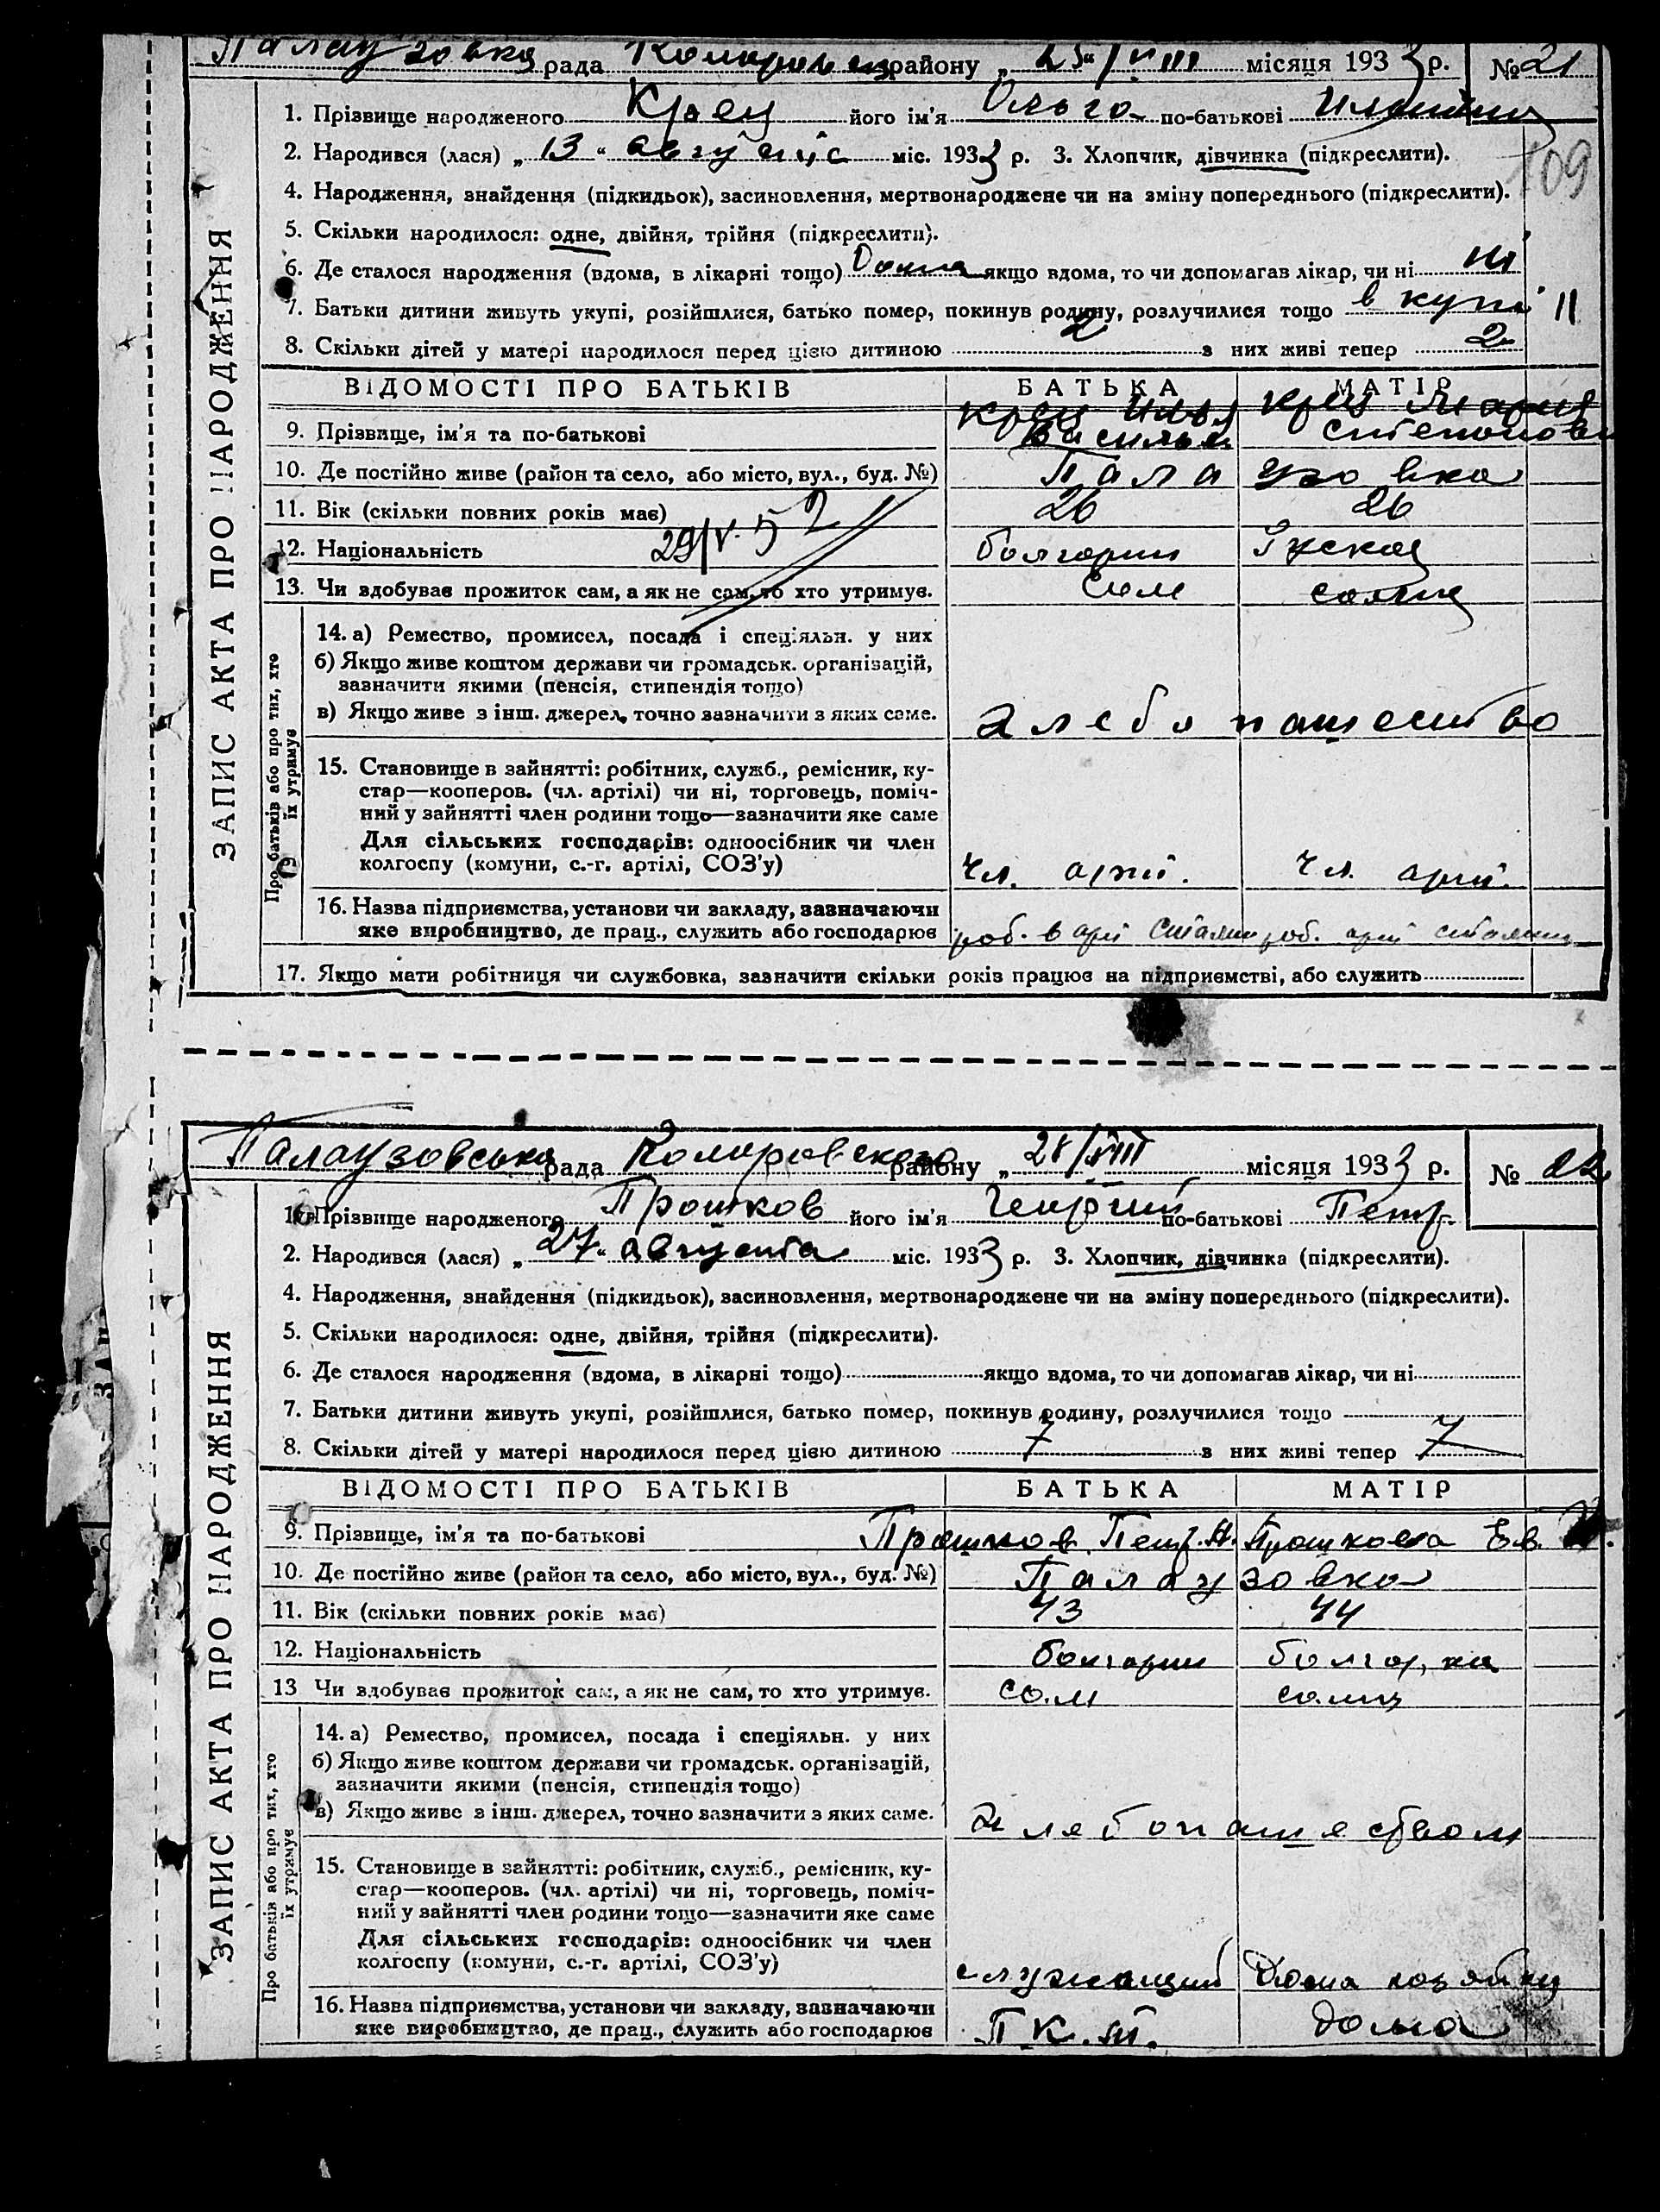 Палаузовка рада района „25“/VIII місяця 1933 р. № 21
1. Прізвище народженого Крец його ім'я Ольга по-батькові
2. Народився (лася) „13“ августа міс. 1933 р. 3. Хлопчик, дівчинка (підкреслити).
109
4. Народження, знайдення (підкидьок), засиновлення, мертвонароджене чи на зміну попереднього (підкреслити).
5. Скільки народилося: одне, двійня, трійня (підкреслити).
6. Де сталося народження (вдома, в лікарні тощо) Дома якщо вдома, то чи допомагав лікар, чи ні ні
7. Батьки дитини живуть укупі, розійшлися, батько помер, покинув родину, розлучилися тощо в купі II
8. Скільки дітей у матері народилося перед цією дитиною 2 з них живі тепер 2
ЗАПИС АКТА ПРО НАРОДЖЕННЯ
ВІДОМОСТІ ПРО БАТЬКІВ БАТЬКА МАТІР
Крец Илья Крец Мария
9. Прізвище, ім'я та по-батькові
10. Де постійно живе (район та село, або місто, вул., буд. №) Палаузовка
11. Вік (скільки повних років має) 26 26
12. Національність 29/V. 52 болгарин
13. Чи здобуває прожиток сам, а як не сам, то хто утримує. сам сама
Про батьків або про тих, хто їх утримує
14. а) Ремество, промисел, посада і спеціяльн. у них
б) Якщо живе коштом держави чи громадськ. організацій,
зазначити якими (пенсія, стипендія тощо)
в) Якщо живе з інш. джерел, точно зазначити з яких саме. хлебопашество
15. Становище в зайнятті: робітник, служб., ремісник, ку-
стар—кооперов. (чл. артілі) чи ні, торговець, поміч-
ний у зайнятті член родини тощо—зазначити яке саме
Для сільських господарів: одноосібник чи член
колгоспу (комуни, с.-г. артілі, СОЗ'у) чл. арті. чл. арті.
16. Назва підприємства, установи чи закладу, зазначаючи
яке виробництво, де прац., служить або господарює роб. в арт роб. арт
17. Якщо мати робітниця чи службовка, зазначити скільки років працює на підприємстві, або служить
Палаузовська рада района „28/VIII місяця 1933 р. № 22
1. Прізвище народженого Прошков його ім'я по-батькові Петр.
2. Народився (лася) „27“ августа міс. 1933 р. 3. Хлопчик, дівчинка (підкреслити).
4. Народження, знайдення (підкидьок), засиновлення, мертвонароджене чи на зміну попереднього (підкреслити).
5. Скільки народилося: одне, двійня, трійня (підкреслити).
6. Де сталося народження (вдома, в лікарні тощо) якщо вдома, то чи допомагав лікар, чи ні
7. Батьки дитини живуть укупі, розійшлися, батько помер, покинув родину, розлучилися тощо
8. Скільки дітей у матері народилося перед цією дитиною 7 з них живі тепер 7
ЗАПИС АКТА ПРО НАРОДЖЕННЯ
ВІДОМОСТІ ПРО БАТЬКІВ БАТЬКА МАТІР
9. Прізвище, ім'я та по-батькові Прошков Петр. Н. Прошкова Ев.
10. Де постійно живе (район та село, або місто, вул., буд. №) Палаузовка
11. Вік (скільки повних років має) 43 44
12. Національність болгарин болгарка
13 Чи здобуває прожиток сам, а як не сам, то хто утримує. сам сама
Про батьків або про тих, хто їх утримує
14. а) Ремество, промисел, посада і спеціяльн. у них
б) Якщо живе коштом держави чи громадськ. організацій,
зазначити якими (пенсія, стипендія тощо)
в) Якщо живе з інш. джерел, точно зазначити з яких саме. хлебопашеством
15. Становище в зайнятті: робітник, служб., ремісник, ку-
стар—кооперов. (чл. артілі) чи ні, торговець, поміч-
ний у зайнятті член родини тощо—зазначити яке саме
Для сільських господарів: одноосібник чи член
колгоспу (комуни, с.-г. артілі, СОЗ'у) служащий Дома
16. Назва підприємства, установи чи закладу, зазначаючи
яке виробництво, де прац., служить або господарює П.К.т. дома